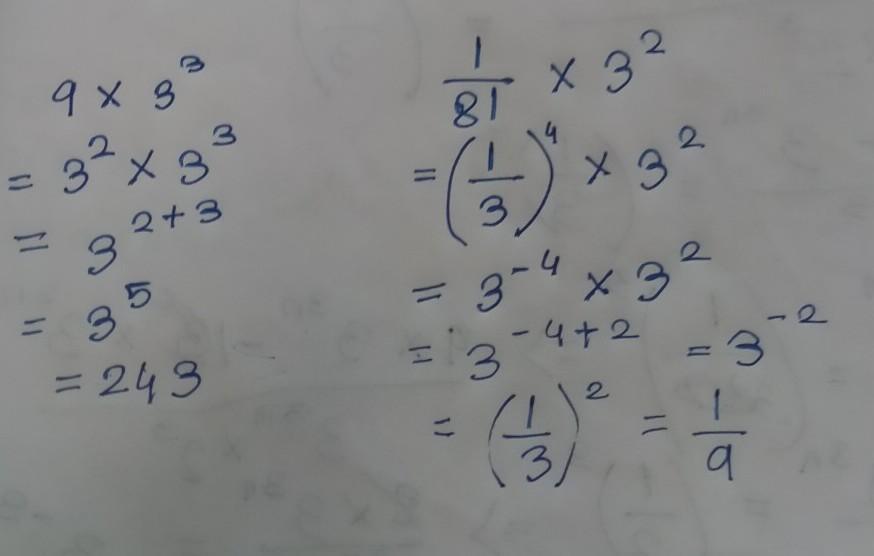 9 × 3³
= 3² × 3³
= 3²⁺³
= 3⁵
= 243
1/81 × 3²
= (1/3)⁴ × 3²
= 3⁻⁴ × 3²
= 3⁻⁴⁺² = 3⁻²
= (1/3)² = 1/9